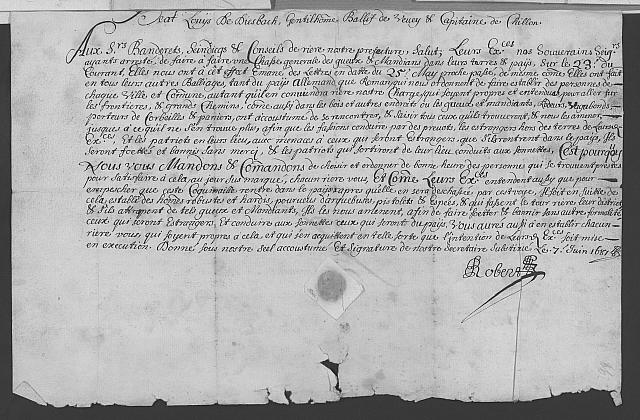 Beat Louis De Diesbach, Gentilhôme Ballif de Vevey & Capitaine de Chillon.
Aux Srs Banderets, Scindicqs & Conseils de riere nostre prefecture Salut; Leurs Exces nos Souverains Seigrs
ayants arresté, de faire a faire une Chasse generale des gueux & Mandians dans leurs terres & pays, Sur le 23e du
Courant, Elles nous ont à cet effect émané des Lettres en datte du 25e May proche passé, de mesme côme Elles ont fait
en tous leurs autres Balliages, tant du pays Allemand que Romand qui nous ordonnent de faire establir des personnes de
chaque Ville et Comune, autant qu'il en conviendra riere nostre Charge, qui soyent propres et entendus, pour aller sur
les frontieres, & grands Chemins, côme aussi dans les bois et autres endroits ou les gueux et mandiants, Rodeurs, Vagabonds
porteurs de Corbeilles & paniers, ont accoustumé de se rencontrer, & saisir tous ceux qu'ils trouveront, & nous les amener,
jusques a ce qu'il ne s'en trouve plus, afin que les fassions conduire par des prevosts, les estrangers hors des terres de Leursd.
Exces, Et les patriots en leurs lieu, avec menaces à ceux qui seront Estrangers, que s'ils rentrent dans le pays, Ils
seront foettés et bannis sans mercy, & les patriots qui sortiront de leur lieu, conduits aux sonnettes, C'est pourquoy
Nous vous Mandons & Comandons de choisir et ordonner de bonne heure des personnes qui se trouveront
pour satisfaire a cela, au jour susmarqué, chacun riere vous, Et Côme Leurs Exces entendent aussy que pour
empescher que ceste Coquinaille rentre dans le pays apres qu'elle en sera deschassée par cest voye, Il soit en suitte de
cela, establi des hômes robustes et hardis, pourveus d'arquebuses, pistolets & Espées, & qui fassent le tour riere leur district
& s'ils attrapent de tels gueux et Mandiants, Ils les nous amenent, afin de faire foetter & bannir sans autre formalité
ceux qui seront Estrangers, Et conduire aux sonnettes ceux qui seront du pays, Vous aurés aussi à en establir chacun
riere vous, qui soyent propres à cela, et qui s'en acquittent en telle sorte que l'intention de Leursd. Exces soit mise
en execution. Donné sous nostre seel accoustumé Et signature de nostre Secretaire Substitué Le 7e Juin 1681
Robert